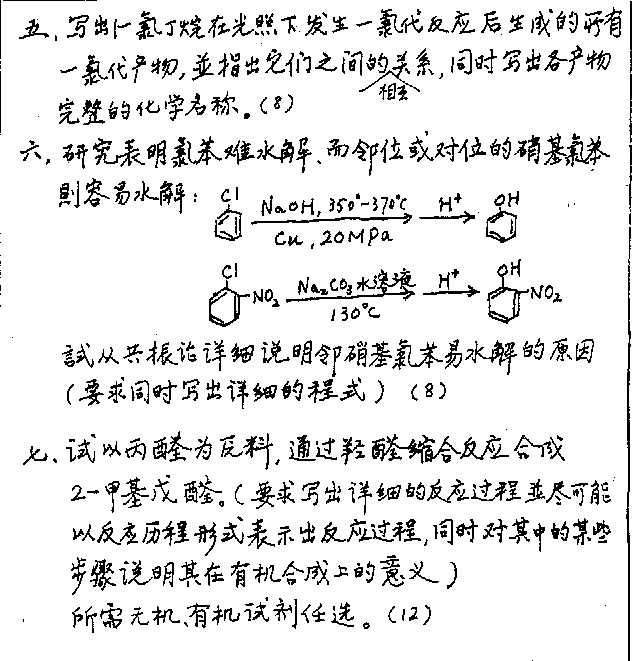 五、写出1-氯丁烷在光照下发生一氯代反应后生成的所有
一氯代产物,並指出它们之间的相互关系,同时写出各产物
完整的化学名称。(8)
六、研究表明氯苯难水解、而邻位或对位的硝基氯苯
則容易水解:
Cl NaOH, 350°-370°C H⁺ OH
Cu, 20MPa
Cl NO₂ Na₂CO₃水溶液 H⁺ OH NO₂
130°C
試从共振论详细说明邻硝基氯苯易水解的原因
(要求同时写出详细的程式) (8)
七、试以丙醛为原料,通过羟醛缩合反应合成
2-甲基戊醛。(要求写出详细的反应过程並尽可能
以反应历程形式表示出反应过程,同时对其中的某些
步骤说明其在有机合成上的意义)
所需无机、有机试剂任选。(12)